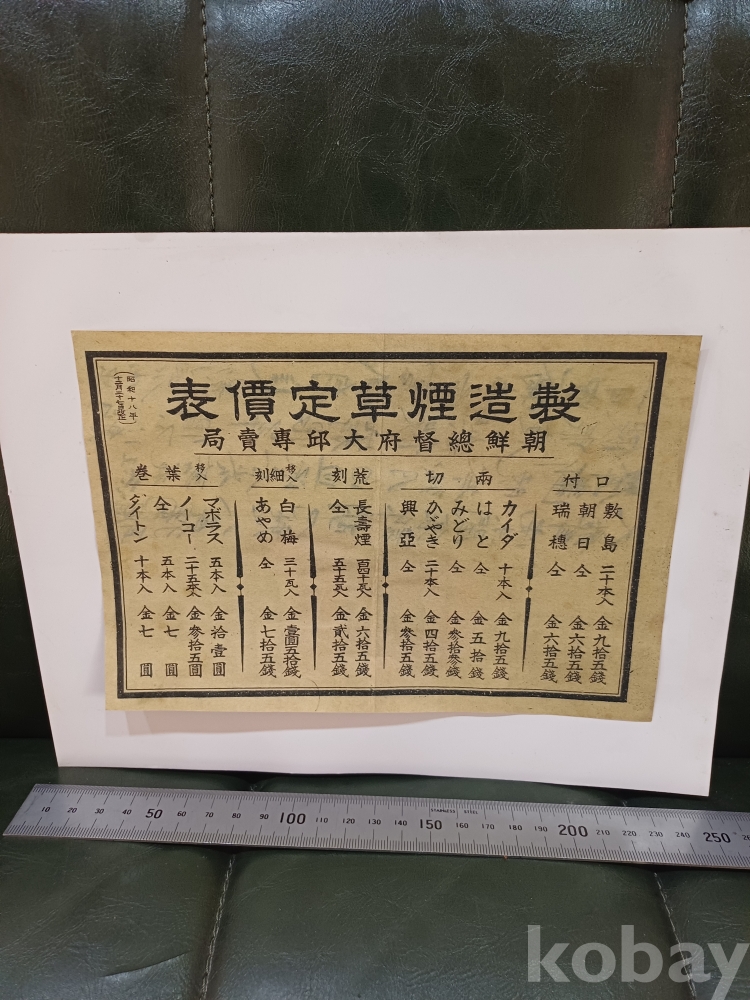 製造煙草定價表
(昭和十八年
十二月二十七日改正)
朝鮮總督府大邱專賣局
口付
敷島 二十本入 金九拾五錢
朝日 仝 金六拾五錢
瑞穗 仝 金六拾五錢
兩切
カイダ 十本入 金九拾五錢
はと 仝 金五拾錢
みどり 仝 金參拾參錢
かゞやき 二十本入 金四拾五錢
興亞 仝 金參拾五錢
荒刻
長壽煙 百四十瓦入 金六拾五錢
仝 五十五瓦入 金貳拾五錢
移入細刻
白梅 三十瓦入 金壹圓五拾錢
あやめ 仝 金七拾五錢
移入葉巻
マボラス 五本入 金拾壹圓
ノーコー 二十五本入 金參拾五圓
仝 五本入 金七圓
ダイトン 十本入 金七圓
STAINLESS STEEL
10 20 30 40 50 60 70 80 90 100 110 120 130 140 150 160 170 180 190 200 210 220 230 240 250
kobay